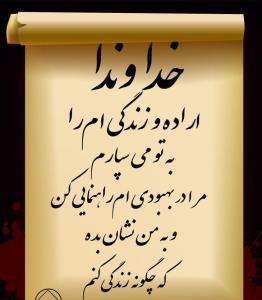 خداوندا
اراده و زندگی ام را
به تو می سپارم
مرا در بهبودی ام راهنمایی کن
و به من نشان بده
که چگونه زندگی کنم